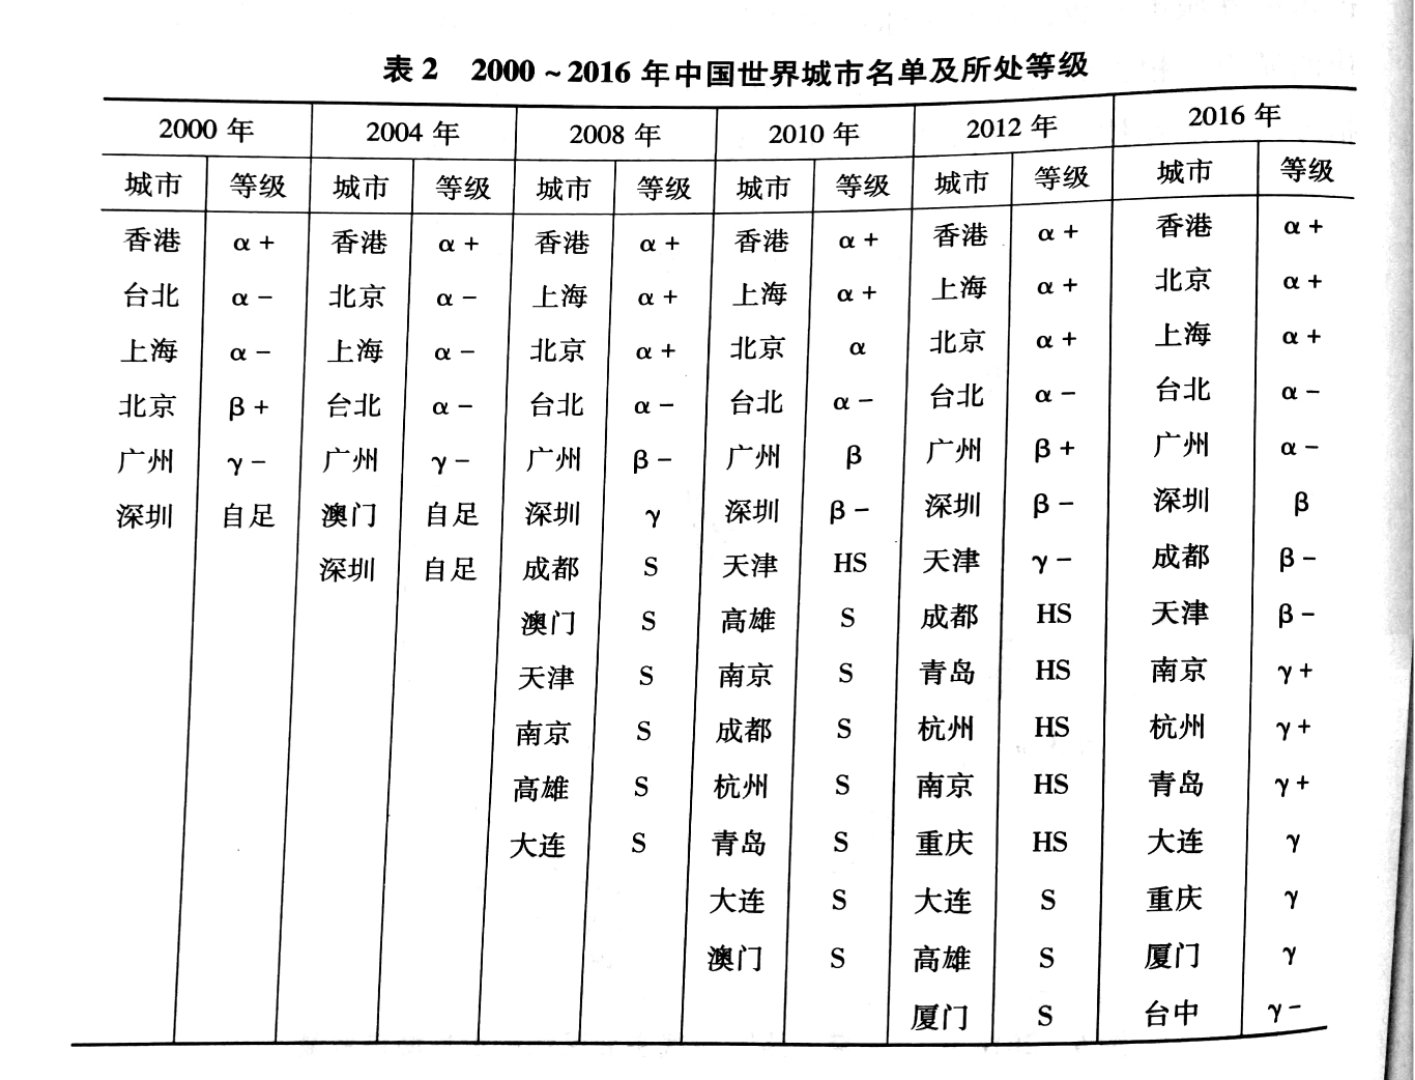 表2 2000~2016年中国世界城市名单及所处等级
2000年 2004年 2008年 2010年 2012年 2016年
城市 等级 城市 等级 城市 等级 城市 等级 城市 等级 城市 等级
香港 α+ 香港 α+ 香港 α+ 香港 α+ 香港 α+ 香港 α+
台北 α- 北京 α- 上海 α+ 上海 α+ 上海 α+ 北京 α+
上海 α- 上海 α- 北京 α+ 北京 α 北京 α+ 上海 α+
北京 β+ 台北 α- 台北 α- 台北 α- 台北 α- 台北 α-
广州 γ- 广州 γ- 广州 β- 广州 β 广州 β+ 广州 α-
深圳 自足 澳门 自足 深圳 γ 深圳 β- 深圳 β- 深圳 β
深圳 自足 成都 S 天津 HS 天津 γ- 成都 β-
澳门 S 高雄 S 成都 HS 天津 β-
天津 S 南京 S 青岛 HS 南京 γ+
南京 S 成都 S 杭州 HS 杭州 γ+
高雄 S 杭州 S 南京 HS 青岛 γ+
大连 S 青岛 S 重庆 HS 大连 γ
大连 S 大连 S 重庆 γ
澳门 S 高雄 S 厦门 γ
厦门 S 台中 γ-